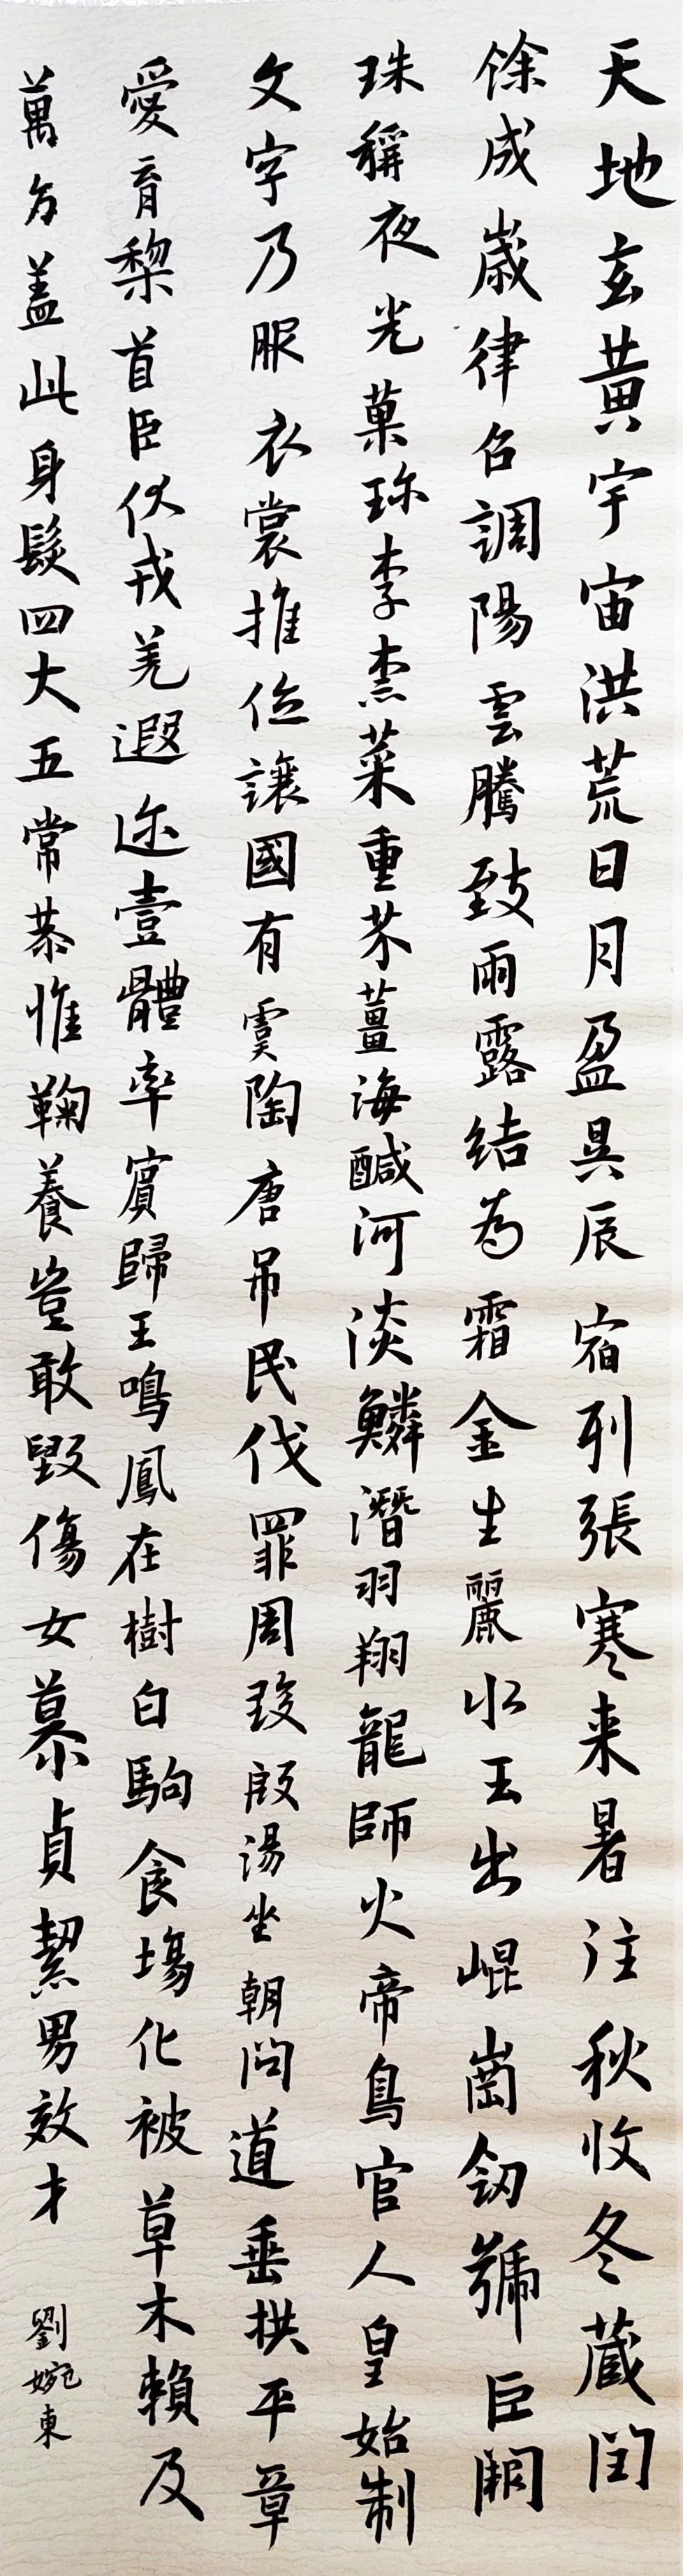 天地玄黃宇宙洪荒日月盈昃辰宿列張寒来暑往秋收冬蔵閏
馀成歲律召調陽雲騰致雨露結為霜金生麗水玉出崐崗劒號巨闕
珠稱夜光菓珎李柰菜重芥薑海鹹河淡鱗潛羽翔龍師火帝鳥官人皇始制
文字乃服衣裳推位讓國有虞陶唐吊民伐罪周發殷湯坐朝問道垂拱平章
愛育黎首臣伏戎羌遐迩壹體率賓歸王鳴鳳在樹白駒食場化被草木賴及
萬方蓋此身髮四大五常恭惟鞠養豈敢毀傷女慕貞絜男效才
劉婉東